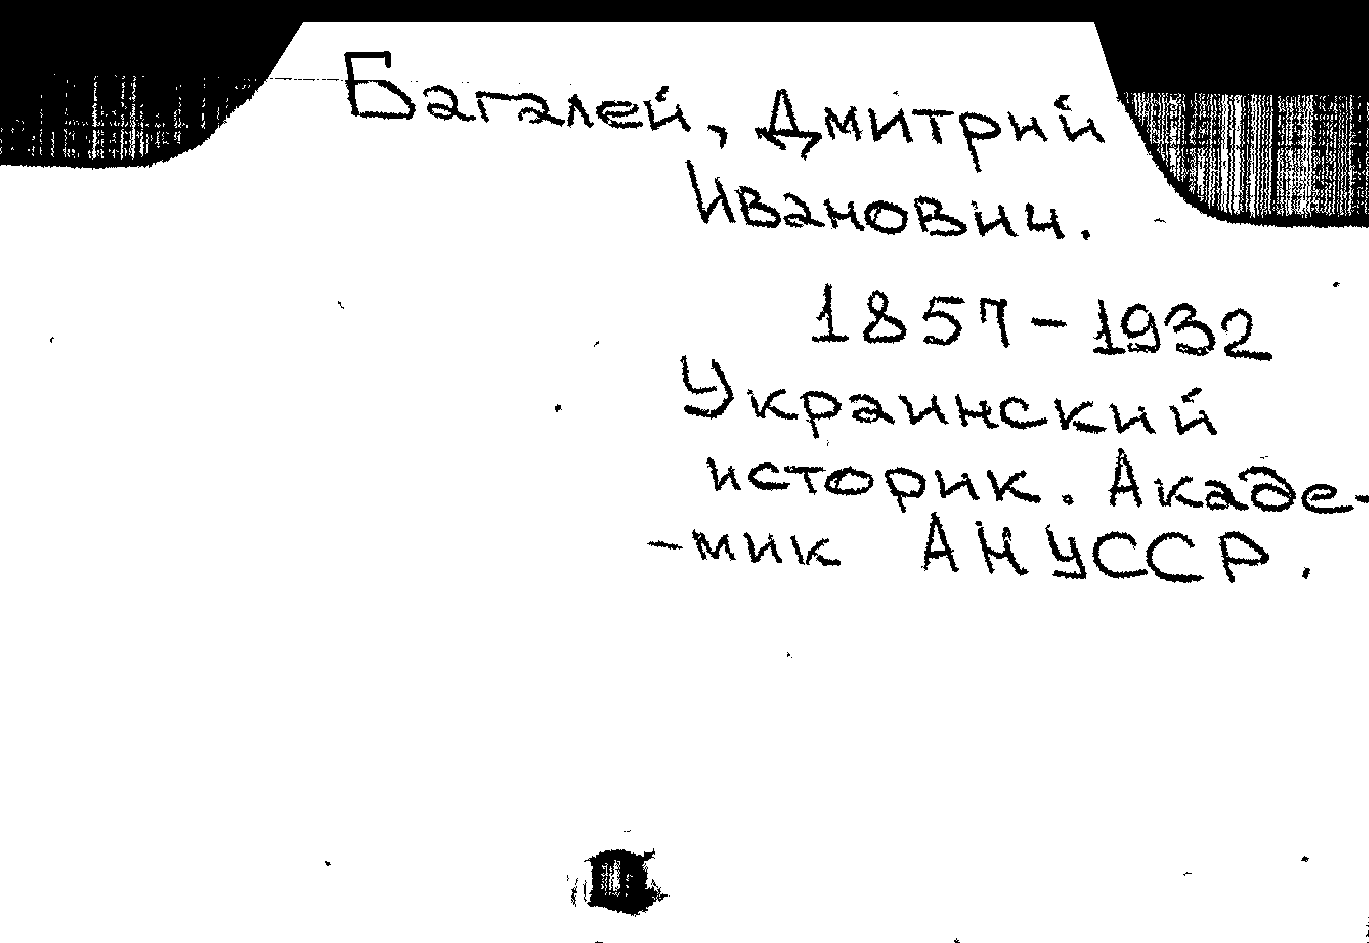 Багалей, Дмитрий
Иванович.
1857-1932
Украинский
историк. Акаде-
-мик АНУССР.